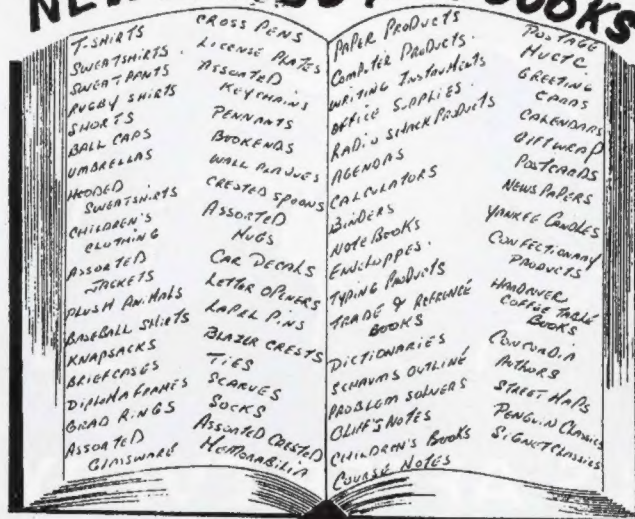 BOOKS
T-SHIRTS
SWEATSHIRTS
SWEATPANTS
RUGBY SHIRTS
SHORTS
BALL CAPS
UMBRELLAS
HOODED
SWEATSHIRTS
CHILDREN'S
CLOTHING
ASSORTED
JACKETS
PLUSH ANIMALS
BASEBALL SHIRTS
KNAPSACKS
BRIEFCASES
DIPLOMA FRAMES
GRAD RINGS
ASSORTED
GLASSWARE
CROSS PENS
LICENSE PLATES
ASSORTED
KEYCHAINS
PENNANTS
BOOKENDS
WALL PLAQUES
CRESTED SPOONS
ASSORTED
MUGS
CAR DECALS
LETTER OPENERS
LAPEL PINS
BLAZER CRESTS
TIES
SCARVES
SOCKS
ASSORTED CRESTED
MEMORABILIA
PAPER PRODUCTS
COMPUTER PRODUCTS.
WRITING INSTRUMENTS
OFFICE SUPPLIES.
RADIO SHACK PRODUCTS
AGENDAS
CALCULATORS
BINDERS
NOTEBOOKS
ENVELOPPES.
TYPING PRODUCTS
TRADE & REFERENCE
BOOKS
DICTIONARIES
SCHAUMS OUTLINE
PROBLEM SOLVERS
CLIFF'S NOTES
CHILDREN'S BOOKS
COURSE NOTES
POSTAGE
MUCTC
GREETING
CARDS
CALENDARS
GIFTWRAP
POSTCARDS
NEWSPAPERS
YANKEE CANDLES
CONFECTIONARY
PRODUCTS
HARDCOVER
COFFEE TABLE
BOOKS
CONCORDIA
AUTHORS
STREET MAPS
PENGUIN CLASSICS
SIGNET CLASSICS